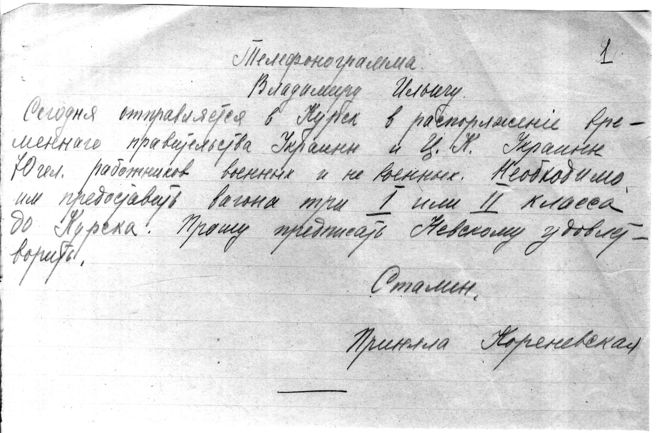 1
Телефонограмма.
Владимиру Ильичу.
Сегодня отправляется в Курск в распоряжение вре-
меннаго правительства Украины и Ц. К. Украины
70 чел. работников военных и не военных. Необходимо
им предоставить вагона три I или II класса
до Курска. Прошу предписать Невскому удовлет-
ворить.
Сталин.
Приняла Кореневская